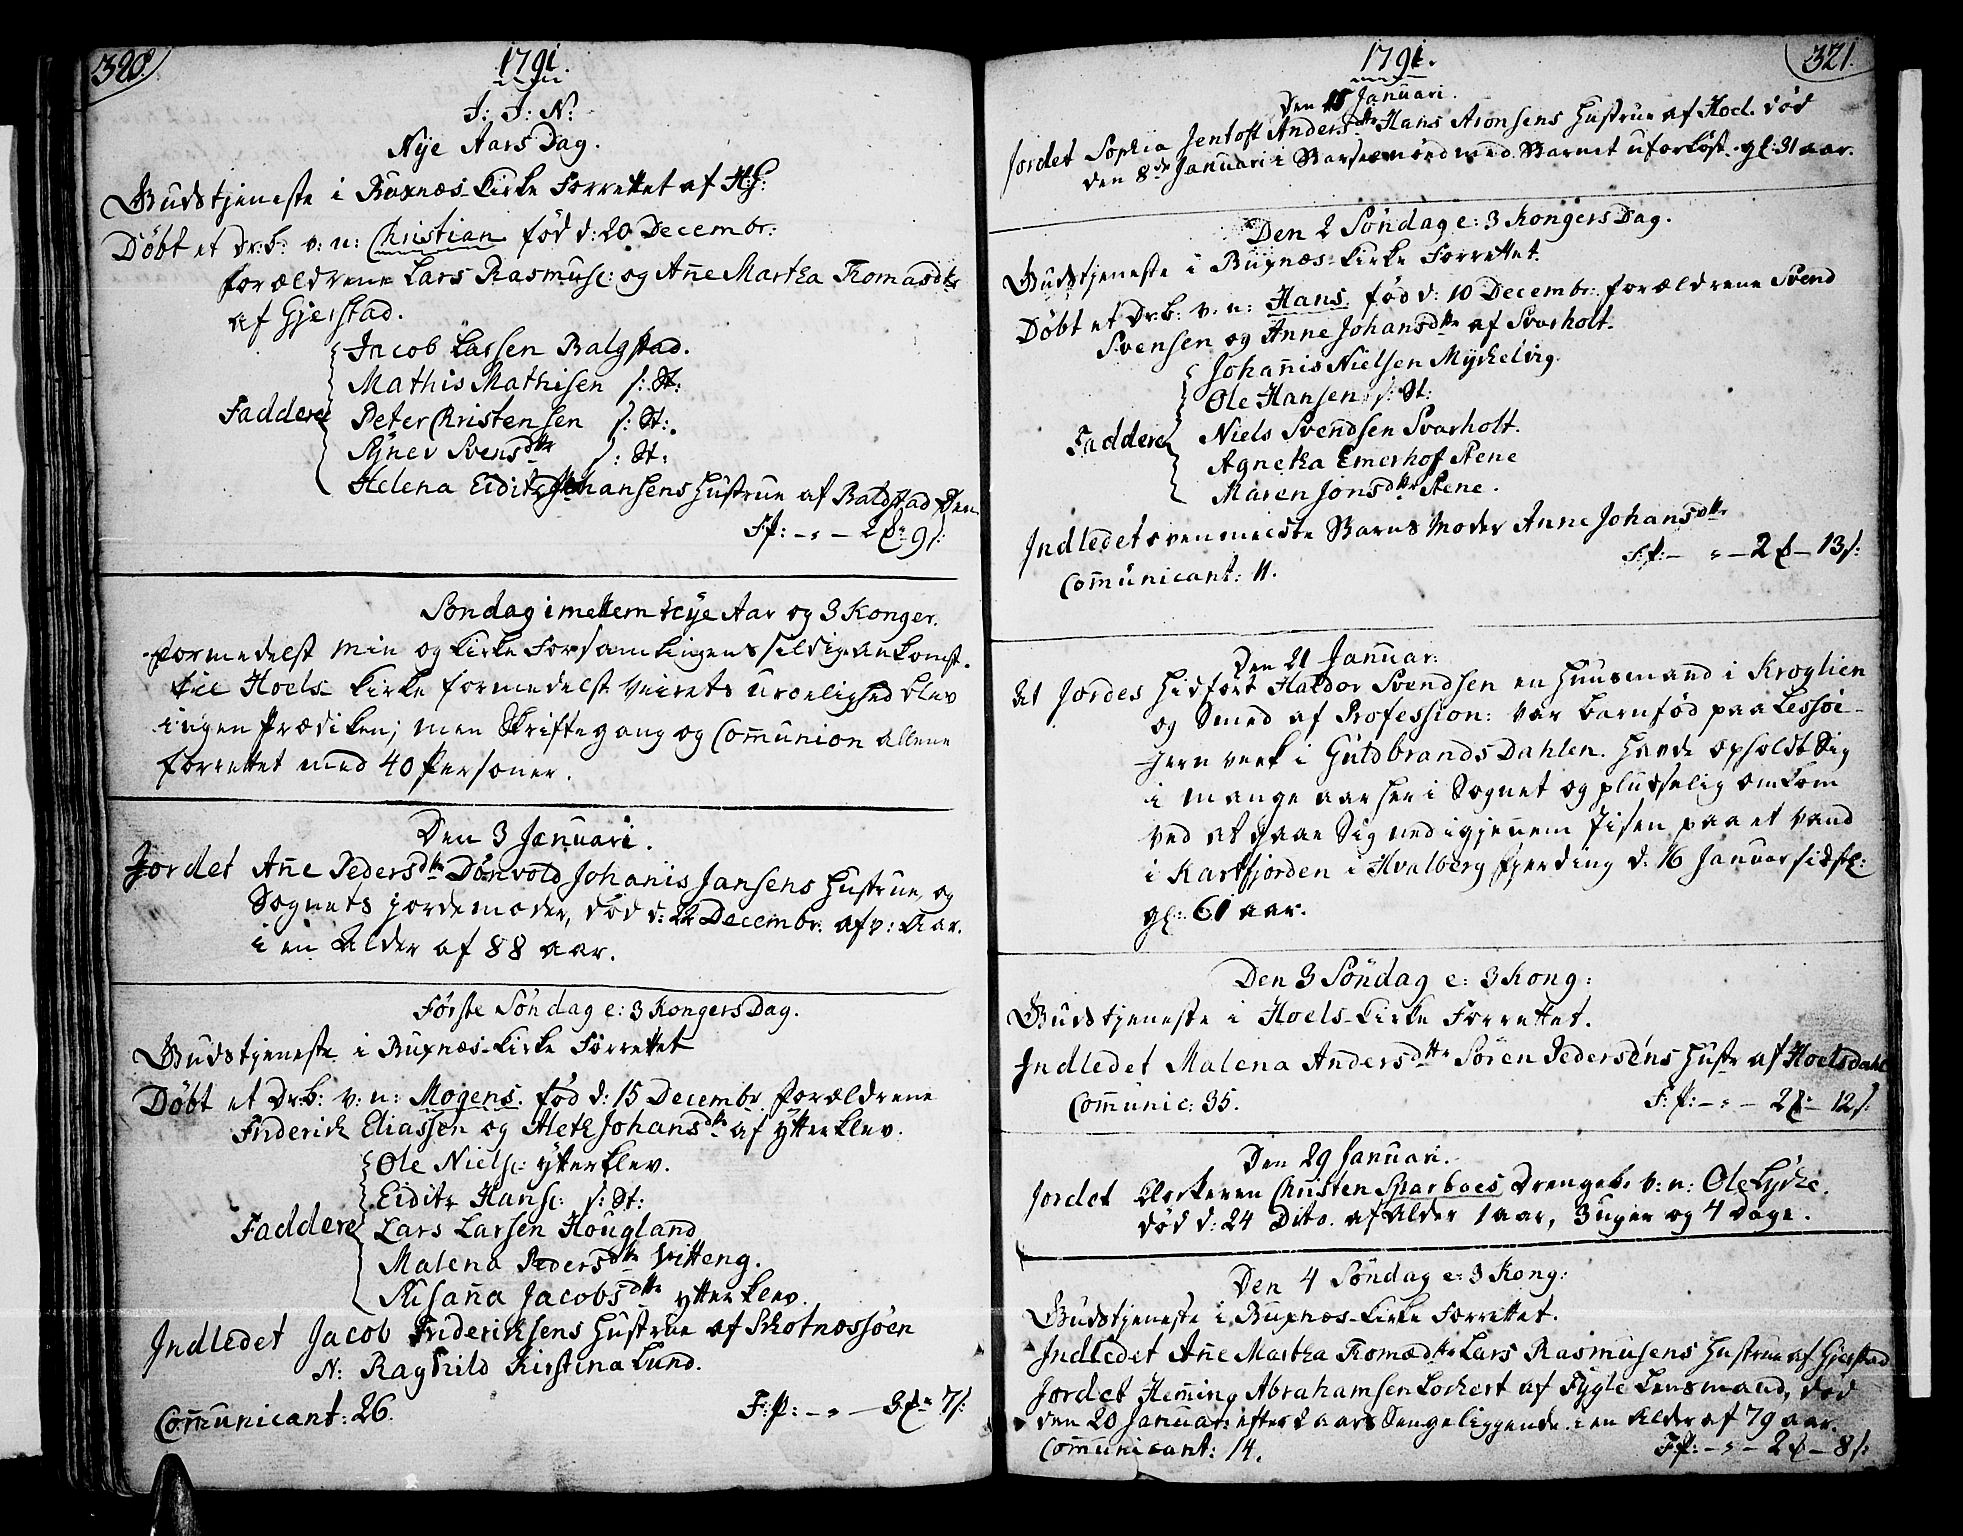 320.
1791.
J: J: N:
Nye Aars Dag.
Gudstjeneste i Buxnæs Kirke Forrettet af H:H:
Døbt et Dr:b: v: n: Christian fød d: 20 Decembr:
forældrene Lars Rasmus: og Añe Martha Tomasdtr
af Gjerstad.
Jacob Larsen Balgstad.
Mathis Mathisen s: St:
Faddere Peter Christensen s: St:
Synev Svensdtr s: St:
Helena Eidit Johansens Hustrue af Balstad
F:p: - : - 2 9 s:
Søndag i mellem Nye Aar og 3 Konger.
formedelst min og Kirke Forsamlingens sildige ankomst
til Hoels Kirke formedelst Veirets uroelighed blev
ingen Prædiken; men Skriftegang og Com̃union allene
forrettet med 40 Personer.
Den 3 Januari.
Jordet Añe Pedersdtr Dønvold Johañis Jansens Hustrue, og
Sognets jordemoder, død d: 22 Decembr: af v: Aar.
i en Alder af 88 aar.
Første Søndag e: 3 Kongers Dag.
Gudstjeneste i Buxnæs Kirke Forrettet
Døbt et Dr:b: v: n: Mogens. fød d: 15 Decembr forældrene
Friderich Eliassen og Aleth Johansdtr af ytterklev.
Ole Niels: ytterklev.
Eidits Hans: s: St:
Faddere Lars Larsen Hougland
Malena Pedersdtr Vitteng.
Susaña Jacobsdtr ytterklev.
Indledet Jacob Friderichsens Hustrue af Skotnæssøen
N: Raghild Kirstina Lund.
Com̃unicant: 26.
F:p: - : - 3 7 s:
321.
1791.
Den 15 Januari.
Jordet Sophia Jentoft Andersdtr Hans Aronsens Hustrue af Hoel. død
den 8de Januari i Barselnød med Barnet uforløst. gl: 31 aar.
Den 2 Søndag e: 3 Kongers Dag.
Gudstjeneste i Buxnæs Kirke Forrettet.
Døbt et Dr:b: v: n: Hans. fød d: 10 Decembr: forældrene Svend
Svensen og Anne Johansdtr af Svarholt.
Johañis Nielsen Myrkelvig.
Ole Hansen s: St:
Faddere Niels Svendsen Svarholt.
Agnetha Emerhof Stene
Maren Jonsdtr Stene.
Indledet ovenmeldte Barns Moder Anne Johansdtr
F:p: - : - 2 - 13 s:
Com̃unicant: 11.
Den 21 Januar:
At Jordes hidført Haldor Svendsen en Huusmand i Kroglien
og Smed af Profession: var barnfød paa Lessøe
Jern verk i Guldbrands Dahlen. havde opholdt Sig
i mange aar her i Sognet og pludselig omkom
ved at gaae Sig ned igjenem Jisen paa et Vand
i Kartfjorden i Hvalberg fjerding d: 16 Januar sidstl:
gl: 61 aar.
Den 3 Søndag e: 3 Kong:
Gudstjeneste i Hoels Kirke Forrettet.
Indledet Malena Andersdtr Søren Pedersens Hustr af Hoelsdahl
Com̃unic: 35.
F:p: - : - 2 - 12 s:
Den 29 Januari.
Jordet Klokeren Christen Sparboes Drengeb: v: n: Ole Lyche.
død d: 24 Dito. af Alder 1 aar, 3 uger og 4 Dage.
Den 4 Søndag e: 3 Kong:
Gudstjeneste i Buxnæs Kirke Forrettet.
Indledet Añe Martha Tomædtr Lars Rasmusens Hustrue af Gjerstad
Jordet Hem̃ing Abrahamsen Lochert af Fygle Lensmand, død
den 20 Januar: efter 2 aars Sengeliggende. i en Alder af 79 aar.
Com̃unicant: 14.
F:p: - : - 2 - 8 s: